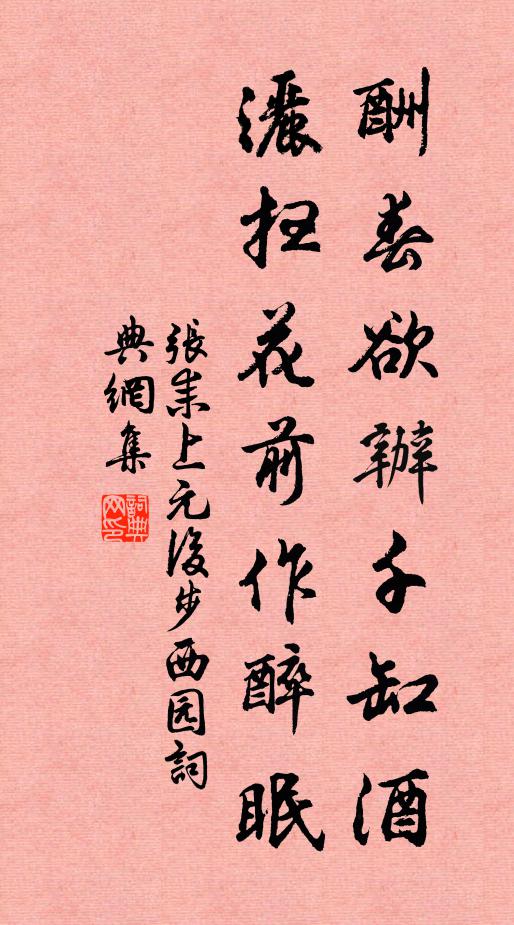 酬春欲辦千缸酒
灑掃花前作醉眠
張耒上元後步西园詞
典網集
詞典網印